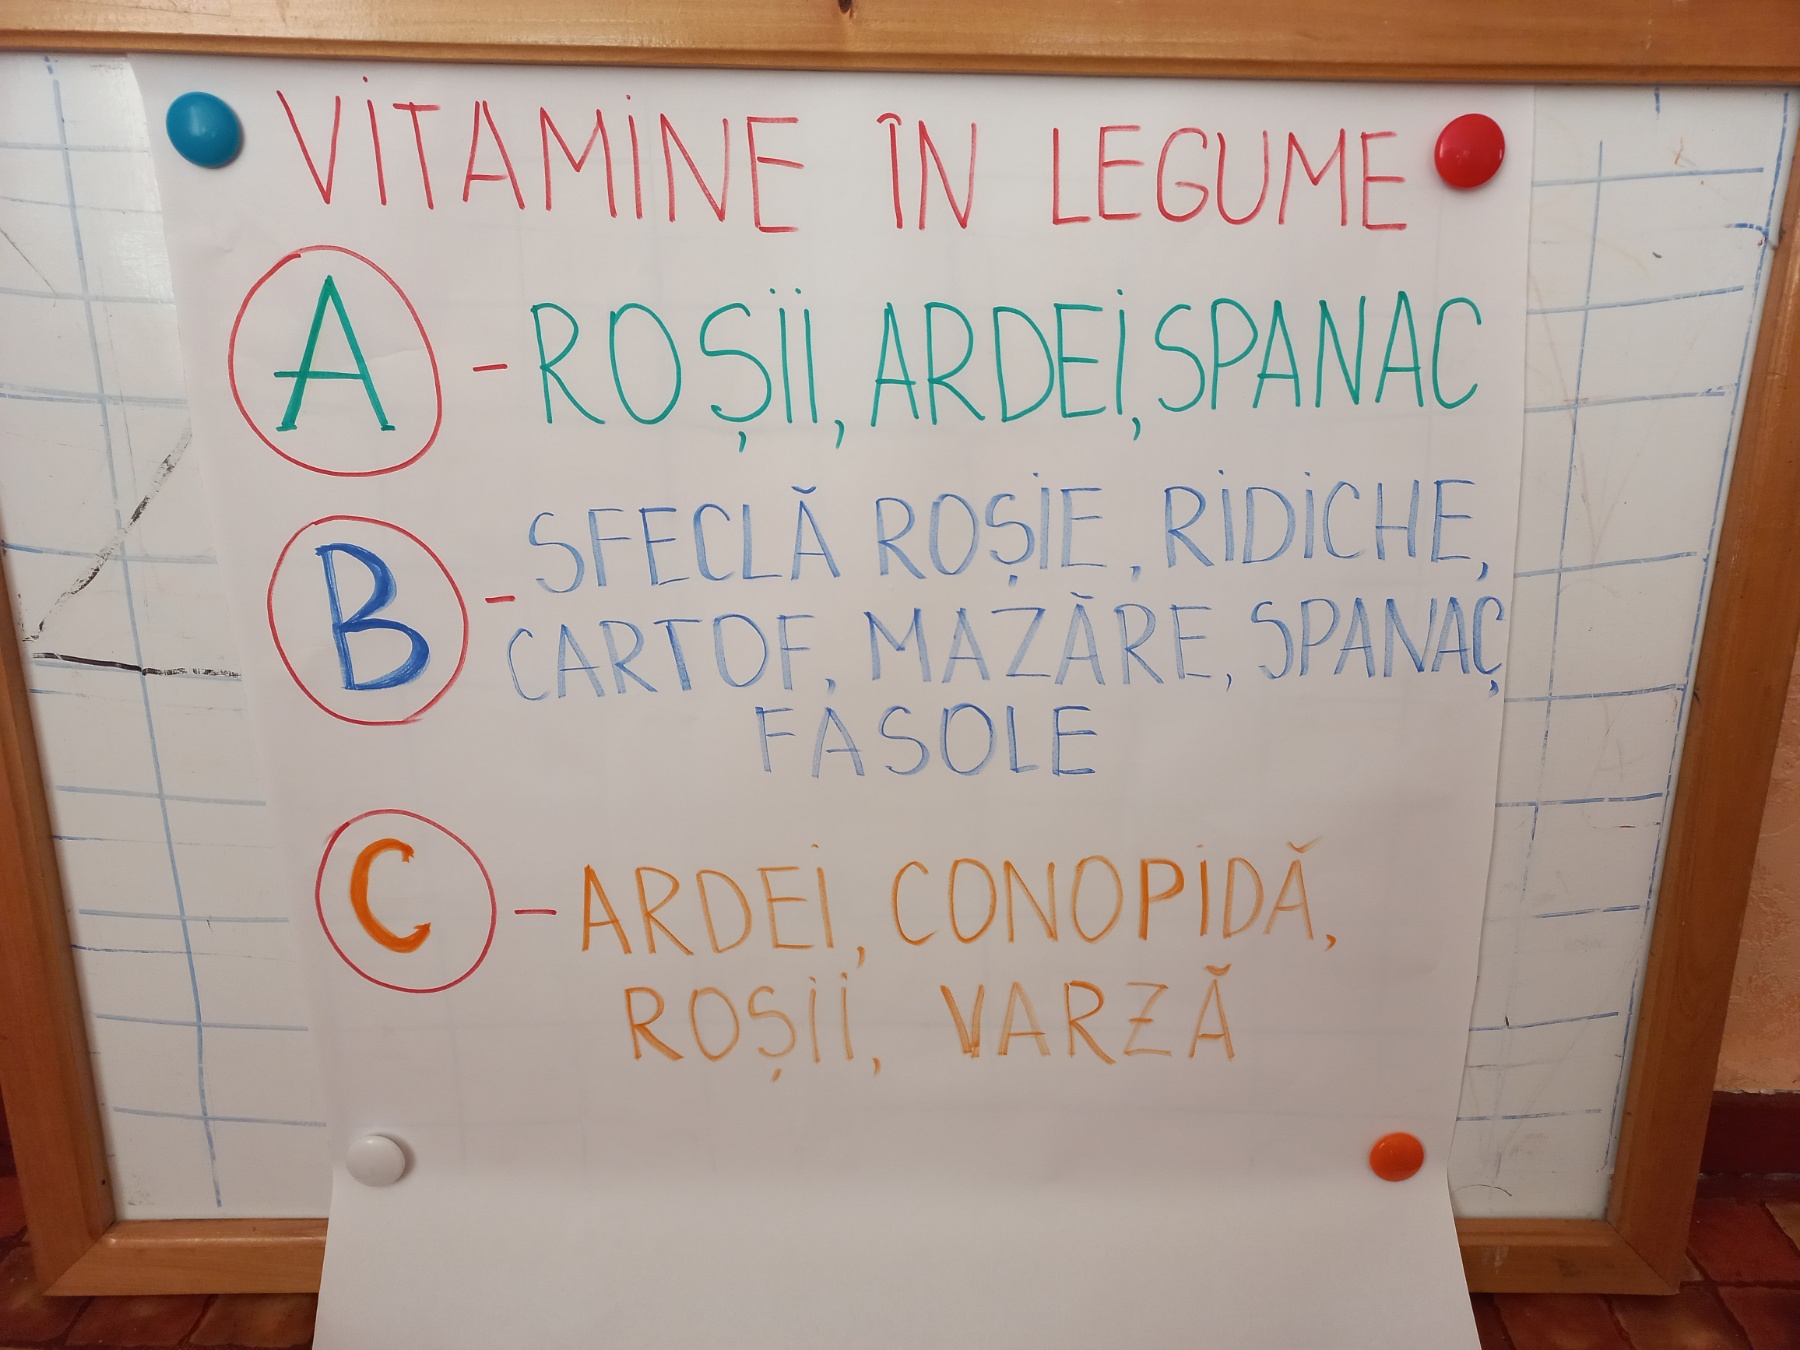 VITAMINE ÎN LEGUME
A - ROȘII, ARDEI, SPANAC
B - SFECLĂ ROȘIE, RIDICHE,
CARTOF, MAZĂRE, SPANAC,
FASOLE
C - ARDEI, CONOPIDĂ,
ROȘII, VARZĂ